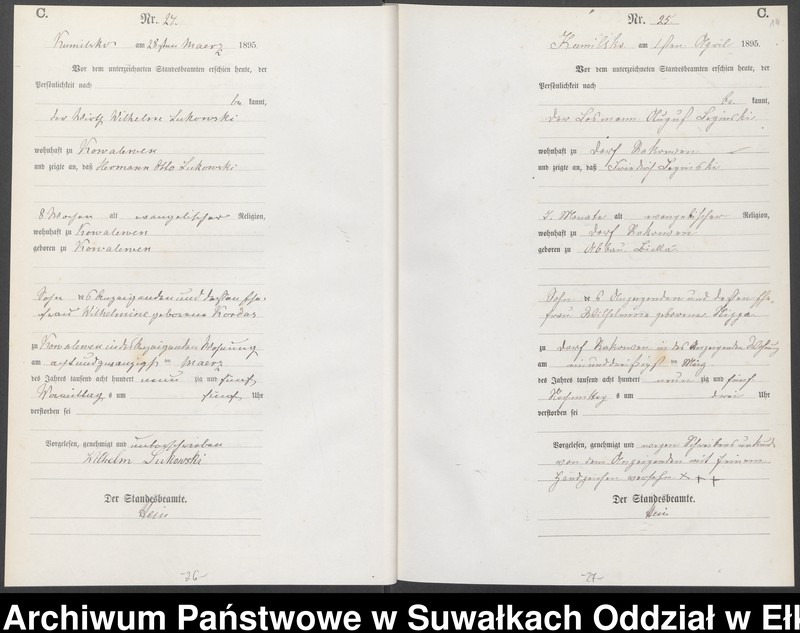 C.
Nr. 24.
Kumilsko am 28sten Maerz 1895.
Vor dem unterzeichneten Standesbeamten erschien heute, der
Persönlichkeit nach
be kannt,
der Wirth Wilhelm Sukowski
wohnhaft zu Kowalewen
und zeigte an, daß Hermann Otto Sukowski
8 Wochen alt evangelischer Religion,
wohnhaft zu Kowalewen
geboren zu Kowalewen
Sohn des Anzeigenden und dessen Ehe-
frau Wilhelmine geborene Kordas
zu Kowalewen in des Anzeigenden Wohnung
am achtundzwanzigsten Maerz
des Jahres tausend acht hundert neun zig und fünf
Vormittags um fünf Uhr
verstorben sei
Vorgelesen, genehmigt und unterschrieben
Wilhelm Sukowski
Der Standesbeamte.
Hein
-26-
C.
Nr. 25.
Kumilsko am 1sten April 1895.
Vor dem unterzeichneten Standesbeamten erschien heute, der
Persönlichkeit nach
be kannt,
der Losmann August Loginski
wohnhaft zu Dorf Rakowen
und zeigte an, daß Friedrich Loginski
Monate alt evangelischer Religion,
wohnhaft zu Dorf Rakowen
geboren zu Abbau Bialla
Sohn des Anzeigenden und dessen Ehe-
frau Wilhelmine geborene
zu Dorf Rakowen in des Anzeigenden Wohnung
am einunddreißigsten März
des Jahres tausend acht hundert neun zig und fünf
Nachmittags um drei Uhr
verstorben sei
Vorgelesen, genehmigt und wegen Schreibensunkunde
von dem Anzeigenden mit seinem
Handzeichen versehen + + +
Der Standesbeamte.
Hein
-27-
Archiwum Państwowe w Suwałkach Oddział w Ełk